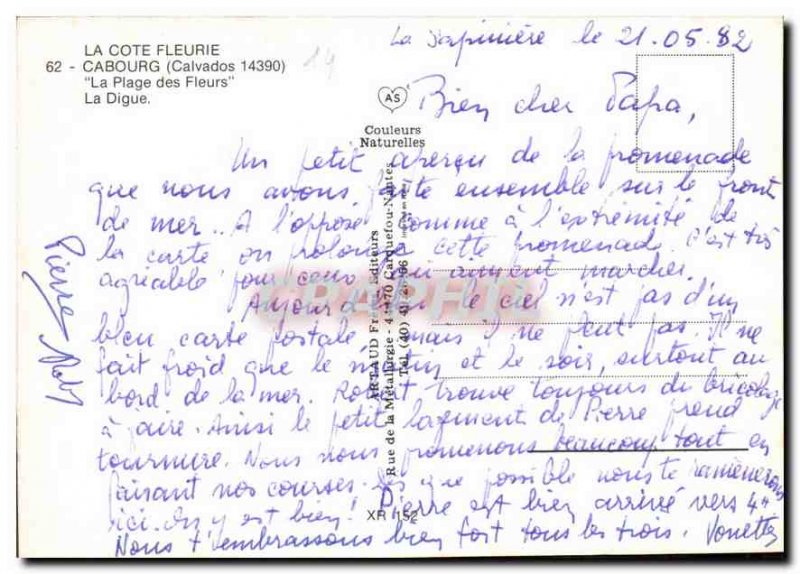 LA COTE FLEURIE
62 - CABOURG (Calvados 14390)
"La Plage des Fleurs"
La Digue.
14
AS
Couleurs
Naturelles
ARTAUD Frères Editeurs
Rue de la Métallurgie - 44470 Carquefou-Nantes
XR 152
La Sapinière le 21.05.82
Bien cher Papa,
Un petit aperçu de la promenade
que nous avons faite ensemble sur le front
de mer.. A l'opposé comme à l'extrémité de
la carte on prolonge cette promenade. C'est très
agréable pour ceux qui aiment marcher.
Aujourd'hui le ciel n'est pas d'un
bleu carte postale, mais il ne pleut pas. Il ne
fait froid que le matin et le soir, surtout au
bord de la mer. Robert trouve toujours du bricolage
à faire. Ainsi le petit logement de Pierre prend
tournure. Nous nous promenons beaucoup tout en
faisant nos courses. Dès que possible nous te ramènerons
ici. On y est bien! Pierre est bien arrivé vers 4h
Nous t'embrassons bien fort tous les trois.
Pierre